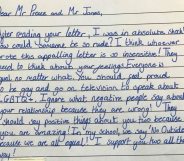 Dear Mr Preece and Mr Jones,
After reading your letter, I was in absolute shock!
How could someone be so rude? I think whoever
wrote this appalling letter is so insensitive! They
need to think about your feelings! Everyone is
equal no matter what. You should feel proud
to be gay and go on television to speak about
Ignore what negative people say about
your relationship because they are wrong! They
should say positive things about you two because
you are amazing! In my school, we say 'No Outsiders'
because we are all equal! I support you two all the
way!